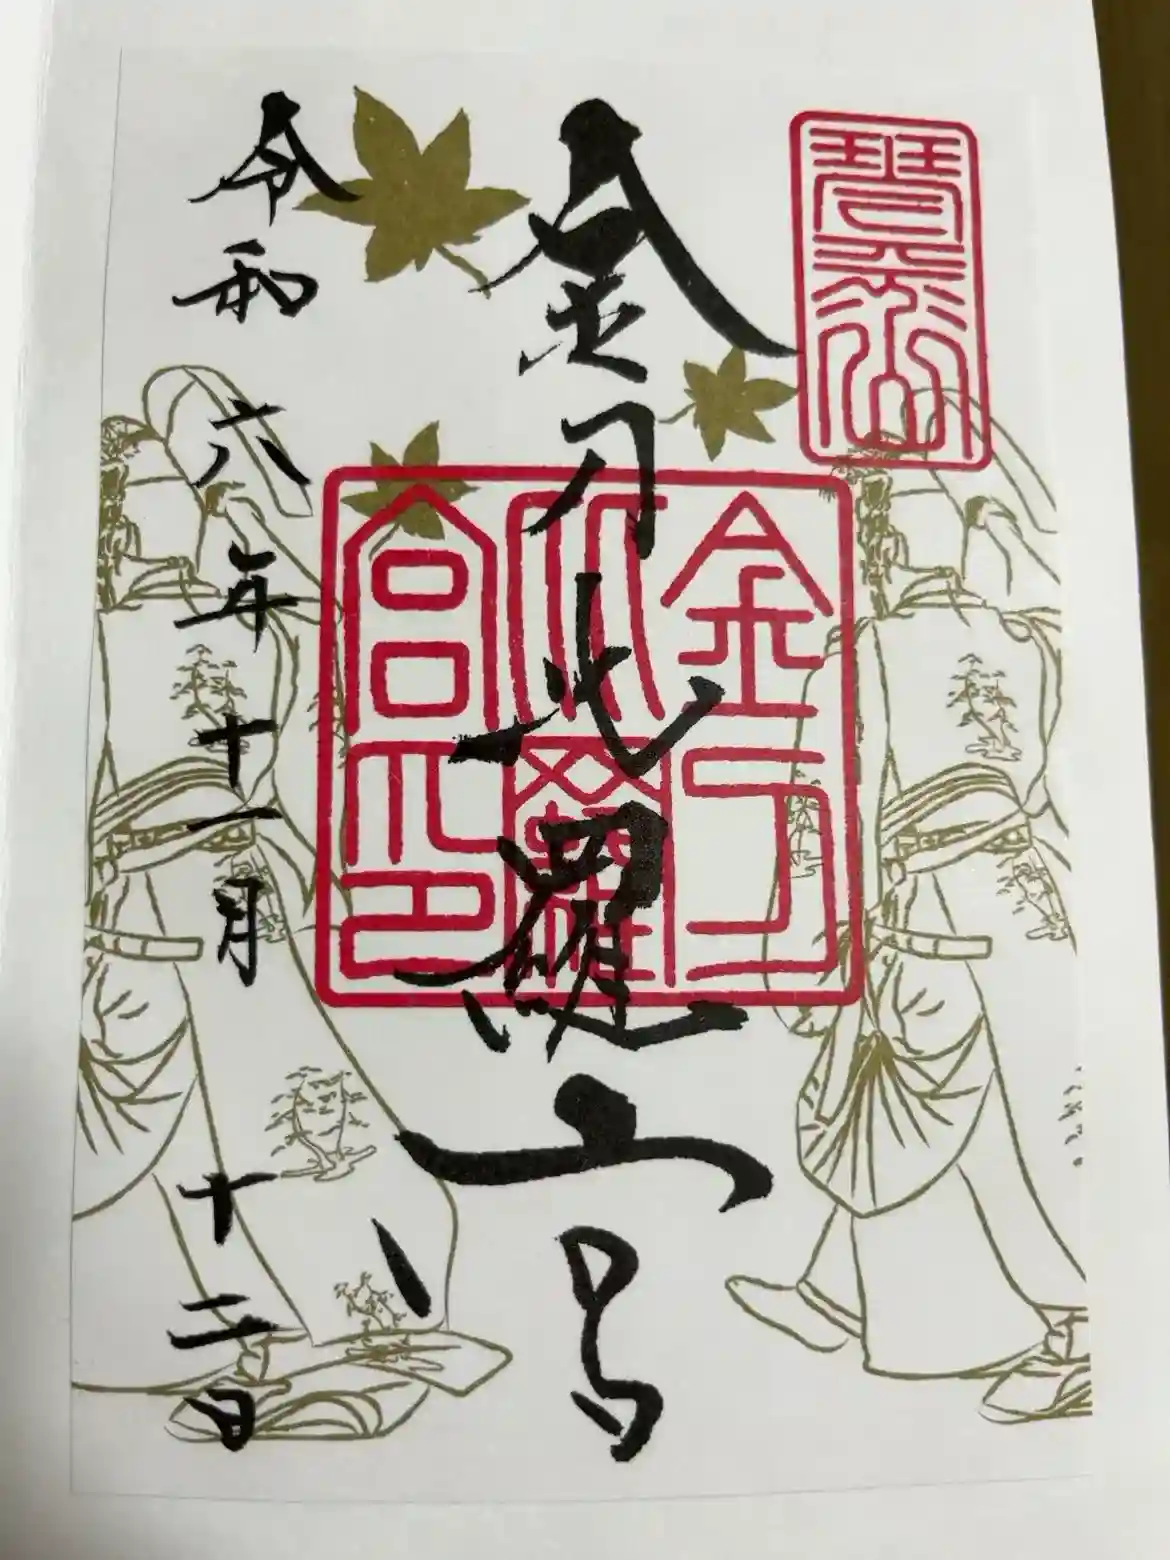 琴平山
金刀比羅宮
金刀比羅宮印
令和六年十一月十二日